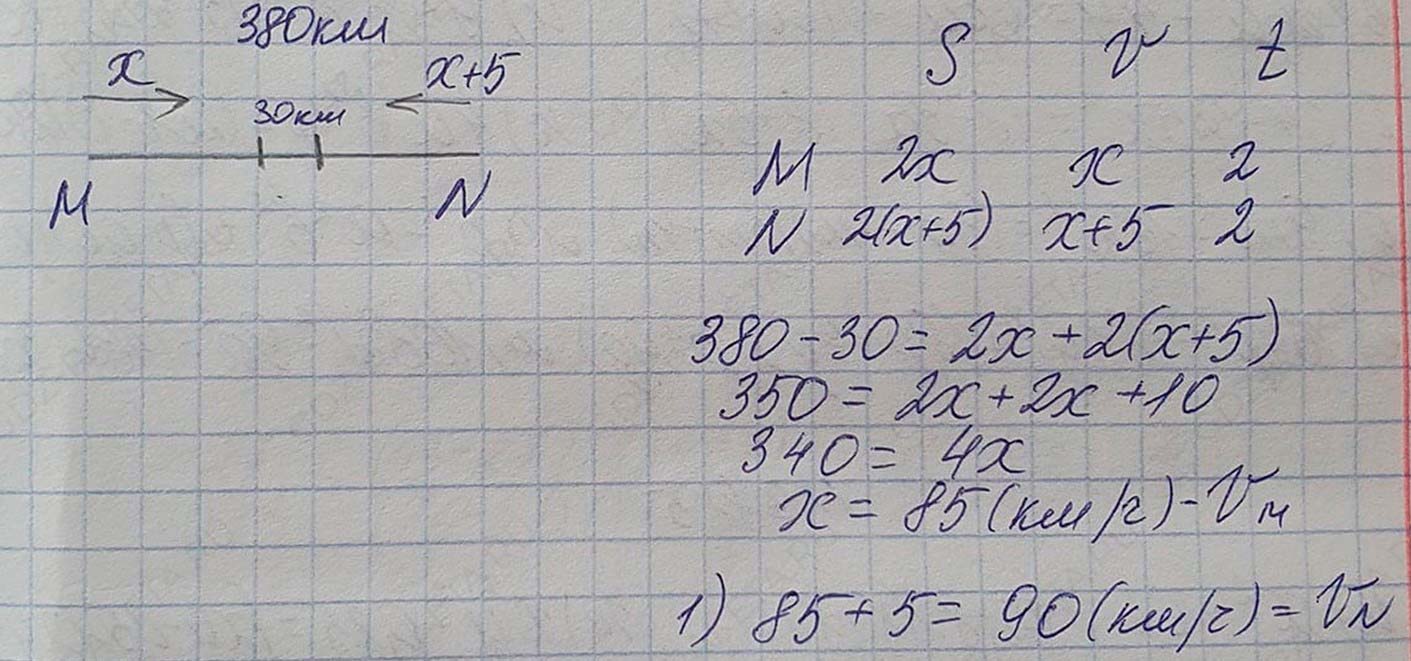 380км
x x+5
30км
M N
S V t
M 2x x 2
N 2(x+5) x+5 2
380-30=2x+2(x+5)
350=2x+2x+10
340=4x
x=85(км/г)-Vм
1) 85+5=90(км/г)=VN